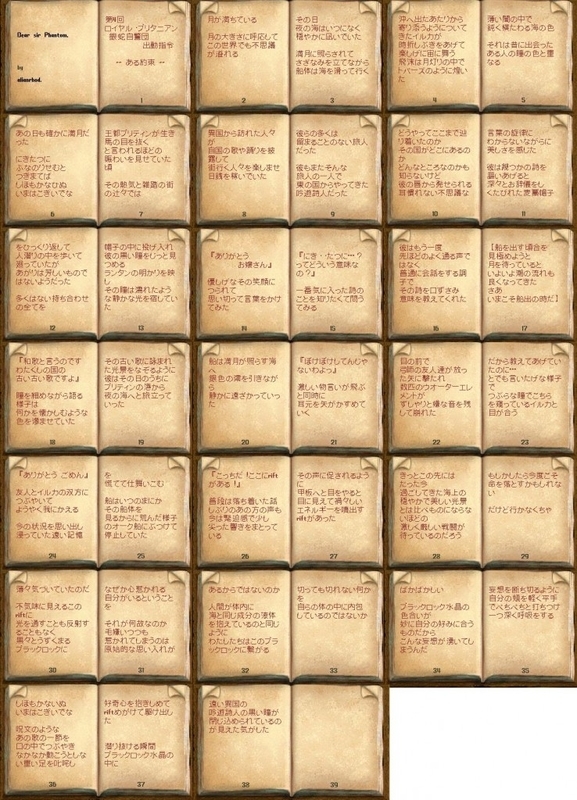 Dear sir Phantom,
by
ロイヤル・ブリタニアン
銀蛇自警団
出動指令
-- ある約束 --
1
月が満ちている
月の大きさに呼応して
この世界でも不思議
が溢れる
2
その日
夜の海はいつになく
穏やかに凪いでいた
満月に照らされて
さざなみを立てながら
船体は海を滑って行く
3
沖へ出たあたりから
寄り添うようについ
てきたイルカが
時折しぶきをあげて
楽しげに宙に舞う
飛沫は月灯りの中で
トパーズのように煌い
た
4
薄い闇の中で
鈍く横たわる海の色
それは昔に出会った
ある人の瞳の色と重
なる
5
あの日も確かに満月だ
った
にきたつに
ふなのりせむと
つきまてば
しほもかなひぬ
いまはこぎいでな
6
王都ブリテインが生き
馬の目を抜く
と言われるほどの
賑わいを見せていた
頃
その熱気と雑踏の街
の辻々では
7
異国から訪れた人々
が
自国の歌や踊りを披
露して
街行く人々を楽しませ
日銭を稼いでいた
8
彼らの多くは
留まることのない旅人
だった
彼もまたそんな
旅人の一人で
東の国からやってきた
吟遊詩人だった
9
どうやってここまで辿
り着いたのか
その国がどこにあるの
か
どんなところなのかも
知らないけど
彼の唇から発せられる
耳慣れない不思議な
10
言葉の旋律に
わからないながらに
美しさを感じた
彼は幾つかの詩を
謡いあげると
深々とお辞儀をし
くたびれた麦藁帽子
11
をひっくり返して
人溜りの中を歩いて
廻っていたが
あがりは芳しいもので
はないようだった
多くはない持ち合わせ
の全てを
12
帽子の中に投げ入れ
彼の黒い瞳をじっと見
つめる
ランタンの明かりを映
し
その瞳は濡れたよう
な静かな光を宿してい
た
13
『ありがとう
お嬢さん』
優しげなその笑顔に
つられて
思い切って言葉をかけ
てみた
14
『にき・たつに…？
ってどういう意味な
の？』
一番気に入った詩の
ことを知りたくて問う
てみる
15
彼はもう一度
先ほどのよく通る声で
はなく
普通に会話をする調
子で
その詩を口ずさみ
意味を教えてくれた
16
【船を出す頃合を
見極めようと
月を待っていると
いよいよ潮の流れも
良くなってきた
さあ
いまこそ船出の時だ】
17
『和歌と言うのです
わたくしの国の
古い古い歌ですよ』
瞳を細めながら語る
様子は
何かを懐かしむような
色を滲ませていた
18
その古い歌に詠まれ
た光景をなぞるように
彼はその日のうちに
ブリテインの港から
夜の海へと旅立って
いった
19
船は満月が照らす海
へ
銀色の澪を引きながら
静かに遠ざかっていっ
た
20
『ぼけぼけしてんじゃ
ないわよっ』
激しい物言いが飛ぶ
と同時に
耳元を矢がかすめて
いく
21
目の前で
弓師の友人達が放っ
た矢に撃たれ
数匹のウオーターエレ
メントが
ずしゃりと嫌な音を残
して崩れた
22
だから教えてあげてい
たのに…
とでも言いたげな様子
で
つぶらな瞳でこちら
を覗っているイルカと
目が合う
23
『ありがとう ごめん』
友人とイルカの双方に
つぶやいて
ようやく我にかえる
今の状況を思い出し
浸っていた遠い記憶
24
を
慌てて仕舞いこむ
船はいつのまにか
その船体を
見るからに荒んだ様子
のオーク船にぶつけて
停止していた
25
『こっちだ！ここにrift
がある！』
普段は落ち着いた話
しぶりのあの方の声も
今は緊迫感で少し
尖った響きをまとって
いる
26
その声に促されるよう
に
甲板へと目をやると
目に見えて禍々しい
エネルギーを噴出す
riftがあった
27
きっとこの先には
たった今
過ごしてきた海上の
穏やかで美しい光景
とは比べものにならな
いほどの
激しく厳しい戦闘が
待っているのだろう
28
もしかしたら今度こそ
命を落とすかもしれな
い
だけど行かなくちゃ
29
薄々気づいていたのだ
不気味に見えるこの
riftに
光を通すことも反射す
ることもなく
黒々とうずくまる
ブラックロックに
30
なぜか心惹かれる
自分がいるということ
を
それが何故なのか
毛嫌いつつも
惹かれてしまうのは
原始的な思い入れが
31
あるからではないのか
人間が体内に
海と同じ成分の液体
を抱えているのと同じ
ように
わたしたちはこのブラ
ックロックに繋がる
32
切っても切れない何か
を
自らの体の中に内包
しているのではないか
33
ばかばかしい
ブラックロック水晶の
色合いが
妙に自分の好みに合う
ものだから
こんな妄想が湧いてし
まうんだ
34
妄想を断ち切るように
自分の頬を軽く平手
でぺちぺちと打ちつけ
一つ深く呼吸をする
35
しほもかなひぬ
いまはこぎいでな
呪文のような
あの歌の一節を
口の中でつぶやき
なかなか動こうとしな
い重い足を叱咤し
36
好奇心を抱きしめて
riftめがけて駆け出し
た
潜り抜ける瞬間
ブラックロック水晶の
中に
37
遠い異国の
吟遊詩人の黒い瞳が
閉じ込められているの
が見えた気がした
38
39